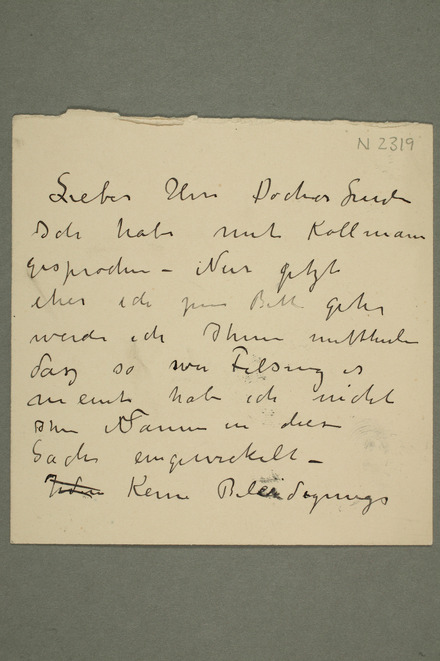 N 2319
Lieber Herr Doctor Linde
Ich habe mit Kollmann
gesprochen – Nur jetzt
eher ich zu Bett gehe
werde ich Ihnen mittheilen
dasz so wie Felsing es
meint habe ich nicht
Ihren Namen in diese
Sache eingewickelt –
Keine Beleidigungs